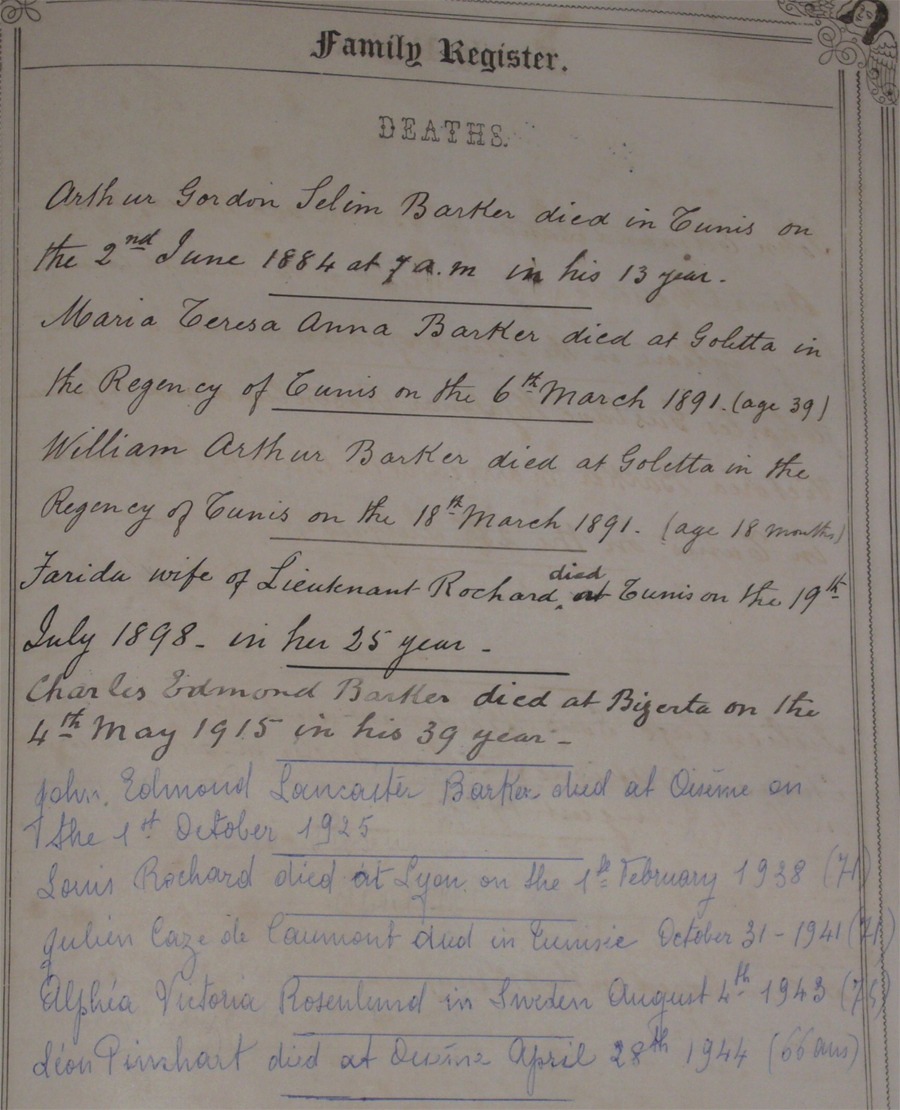 Family Register.
DEATHS.
Arthur Gordon Selim Barker died in Tunis on
the 2nd June 1884 at 7 a.m in his 13 year.
Maria Teresa Anna Barker died at Goletta in
the Regency of Tunis on the 6th March 1891. (age 39)
William Arthur Barker died at Goletta in the
Regency of Tunis on the 18th March 1891. (age 18 months)
Farida wife of Lieutenant Rochard died at Tunis on the 19th
July 1898 - in her 25 year -
Charles Edmond Barker died at Bizerta on the
4th May 1915 in his 39 year -
John. Edmond Lancaster Barker died at on
the 1st October 1925
Louis Rochard died at Lyon on the 1st February 1938 (71
Julien Caze de Caumont died in Tunisie October 31 - 1941 (71)
Alphéa Victoria Rosenlund in Sweden August 4th 1943
Léon Pinshart died at April 28th 1944 (66 ans)